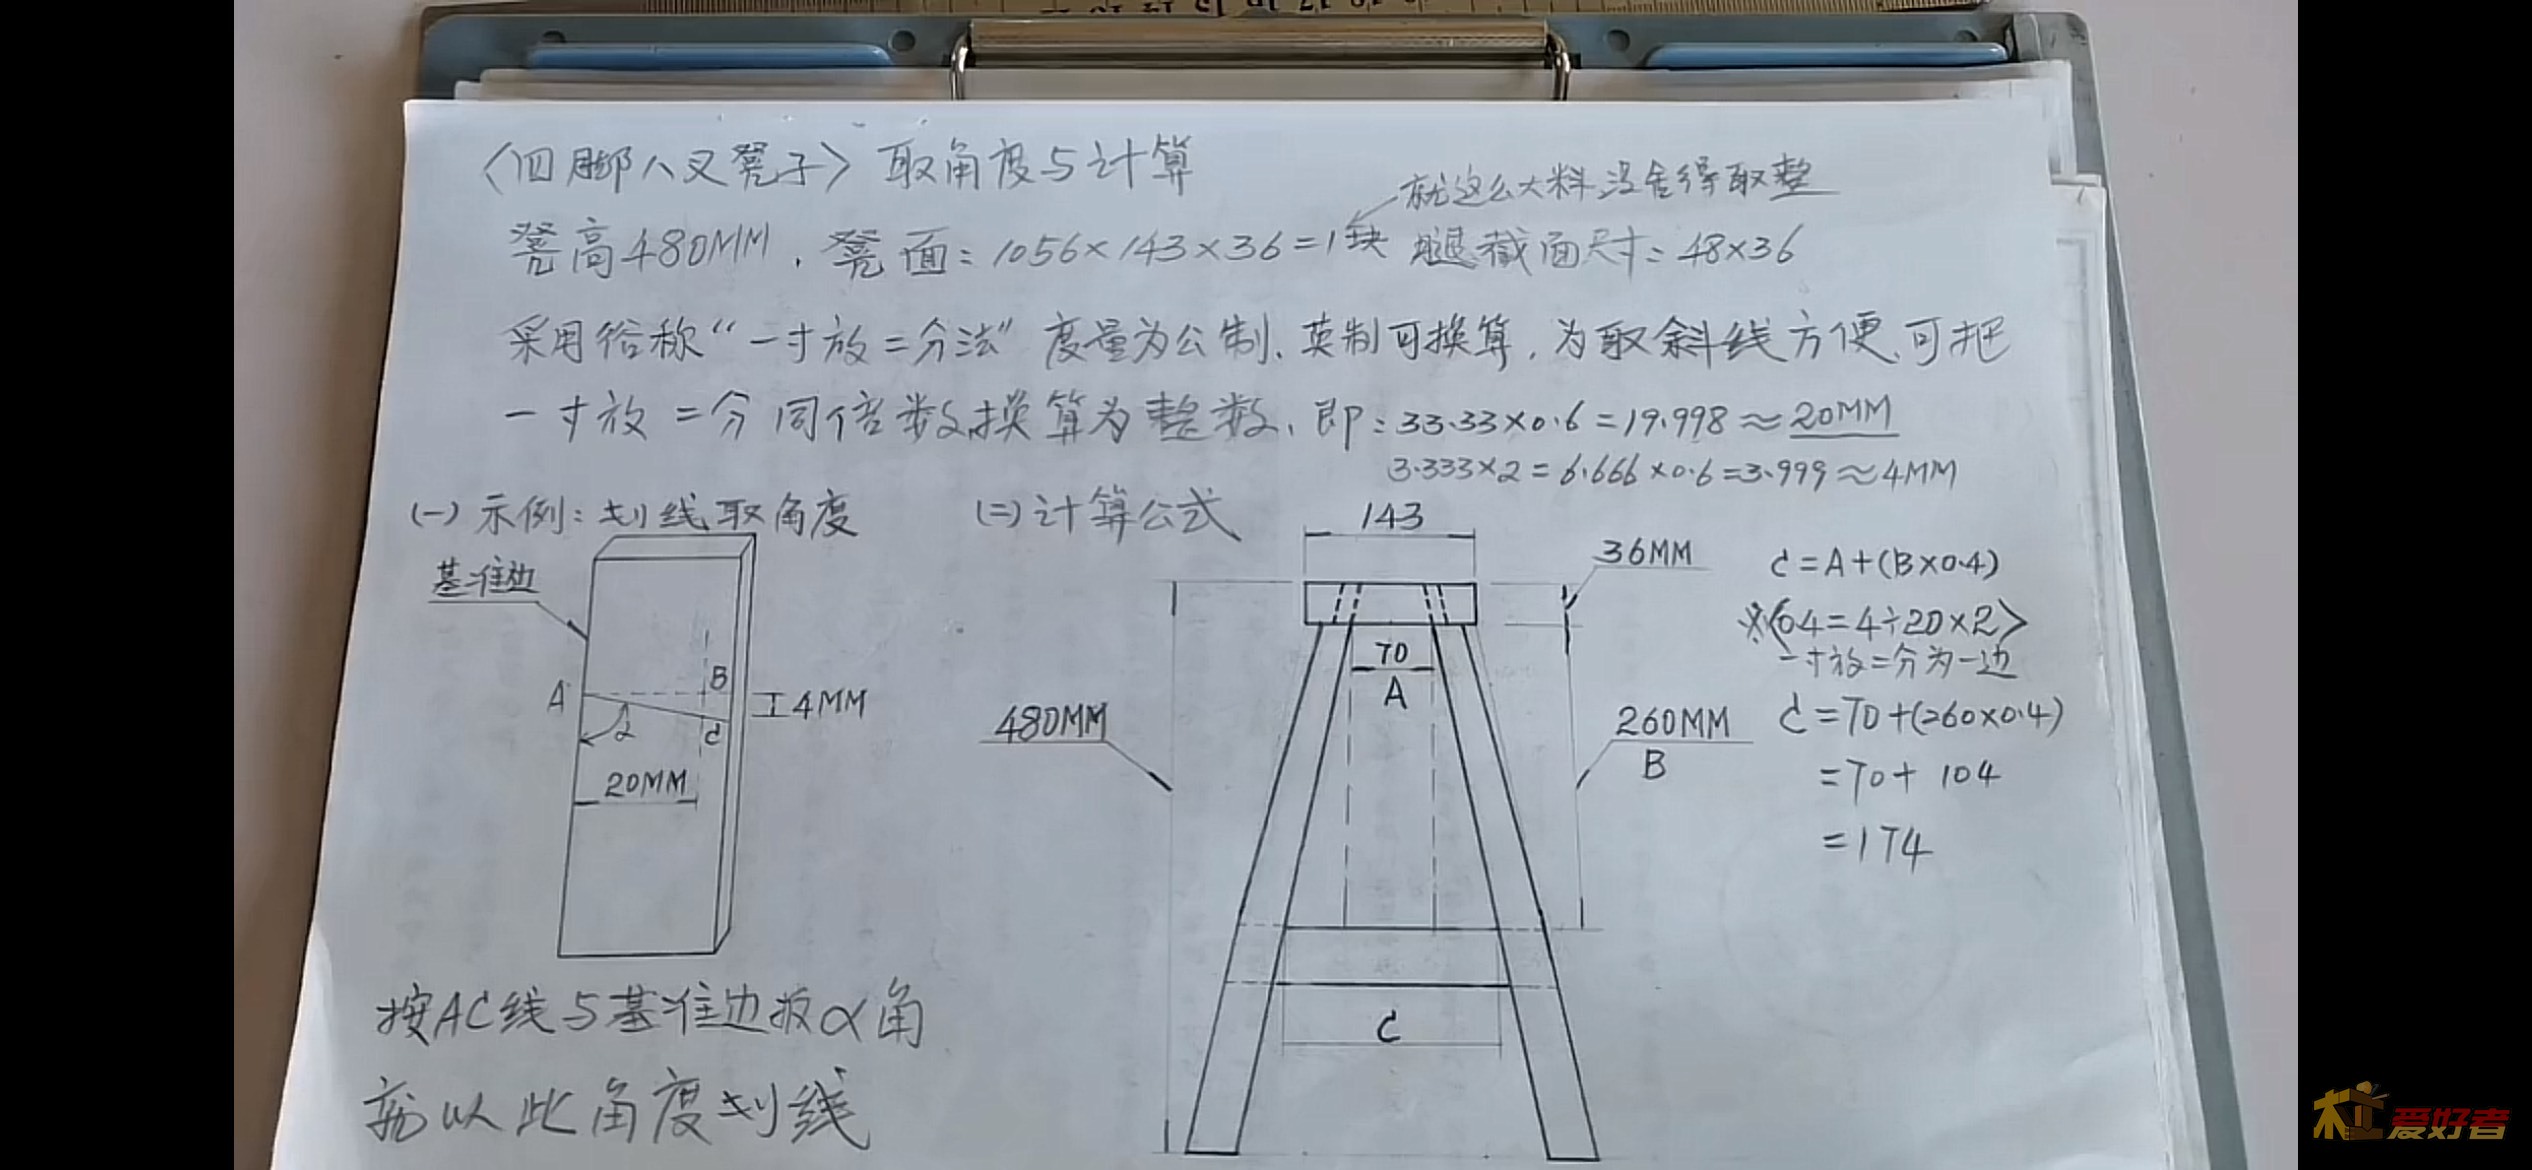 〈四脚八叉凳子〉取角度与计算
就这么大料没舍得取整
凳高480MM、凳面:1056×143×36=1块 腿截面尺寸:48×36
采用俗称“一寸放二分法”度量为公制、英制可换算,为取斜线方便、可把
一寸放二分同倍数换算为整数、即:33.33×0.6=19.998≈20MM
3.333×2=6.666×0.6=3.999≈4MM
(一)示例:划线取角度
基准边
A
B
C
α
4MM
20MM
按AC线与基准边扳α角
就以此角度划线
(二)计算公式
143
36MM
70
A
480MM
260MM
B
C
C=A+(B×0.4)
※〈0.4=4÷20×2〉
一寸放二分为一边
C=70+(260×0.4)
=70+104
=174
木工爱好者